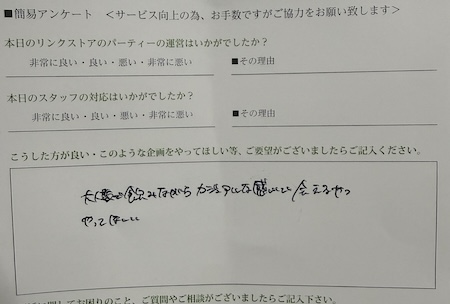 ■簡易アンケート ＜サービス向上の為、お手数ですがご協力をお願い致します＞
本日のリンクストアのパーティーの運営はいかがでしたか？
非常に良い・良い・悪い・非常に悪い ■その理由
本日のスタッフの対応はいかがでしたか？
非常に良い・良い・悪い・非常に悪い ■その理由
こうした方が良い・このような企画をやってほしい等、ご要望がございましたらご記入ください。
大人数で飲みながらカジュアルな感じで会えるやつ
やってほしい
関してお困りのこと、ご質問やご相談がございましたらご記入下さい。